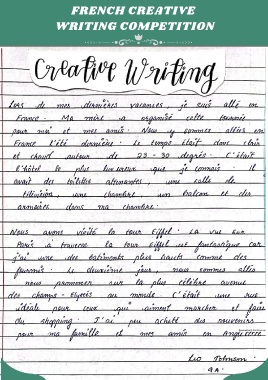 FRENCH CREATIVE
WRITING COMPETITION
Creative Writing
Lors de mes dernières vacances, je suis allé en
France. Ma mère a organisé cette tournée
pour moi et mes amis. Nous y sommes allées en
France l'été dernière. Le temps était donc clair
et chaud autour de 23-30 degrés. C'était
l'hôtel le plus luxueux que je connais. Il
avait des toilettes attenantes, une salle de
télévision, une chambre, un balcon et des
armoires dans ma chambre.
Nous avons visité la tour Eiffel. La vue sur
Paris à travers la tour Eiffel est fantastique car
j'ai vue des bâtiments plus hauts comme des
fourmis. Le deuxième jour, nous sommes allés
nous promener sur la plus célèbre avenue
des champs-Elysées au monde. C'était une rue
idéale pour ceux qui aiment marcher et faire
du shopping. J'ai peu acheté des souvenirs
pour ma famille et mes amis en
Leo Johnson
9A.